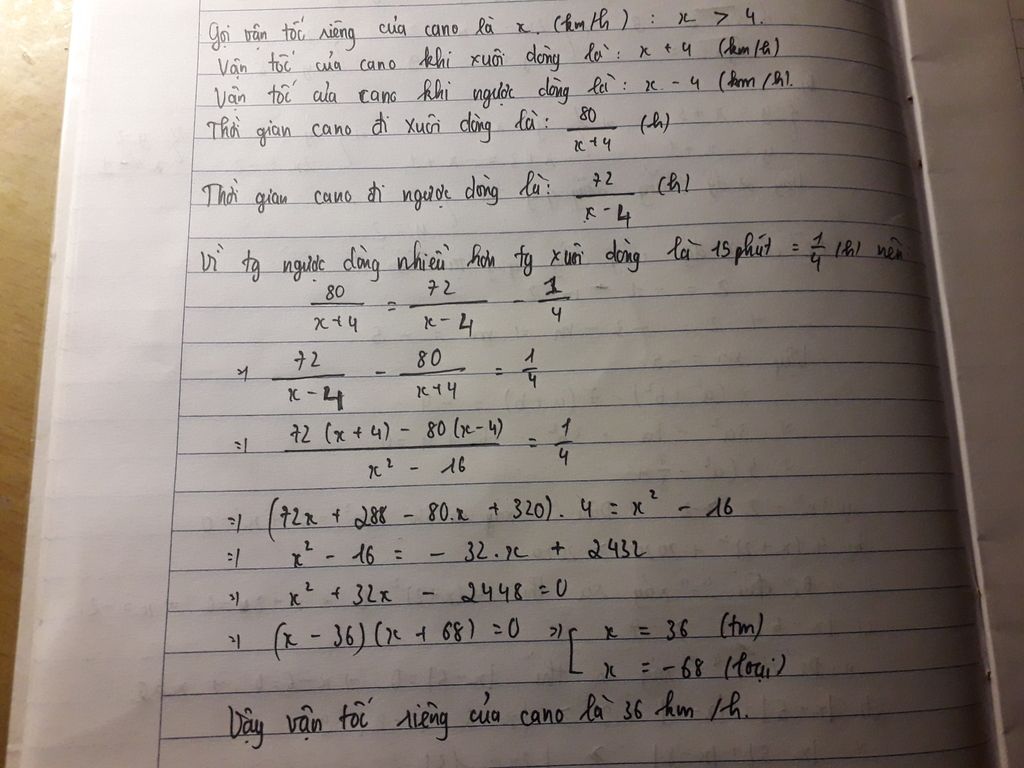 Gọi vận tốc riêng của cano là x. (km/h) : x > 4.
Vận tốc của cano khi xuôi dòng là: x + 4 (km/h)
Vận tốc của cano khi ngược dòng là: x - 4 (km/h).
Thời gian cano đi xuôi dòng là: 80/(x+4) (h)
Thời gian cano đi ngược dòng là: 72/(x-4) (h)
Vì tg ngược dòng nhiều hơn tg xuôi dòng là 15 phút = 1/4 (h) nên
80/(x+4) = 72/(x-4) - 1/4
=> 72/(x-4) - 80/(x+4) = 1/4
=> (72(x+4) - 80(x-4))/(x² - 16) = 1/4
=> (72x + 288 - 80.x + 320). 4 = x² - 16
=> x² - 16 = - 32.x + 2432
=> x² + 32x - 2448 = 0
=> (x - 36)(x + 68) = 0 => [ x = 36 (tm)
x = -68 (loại)
Vậy vận tốc riêng của cano là 36 km/h.